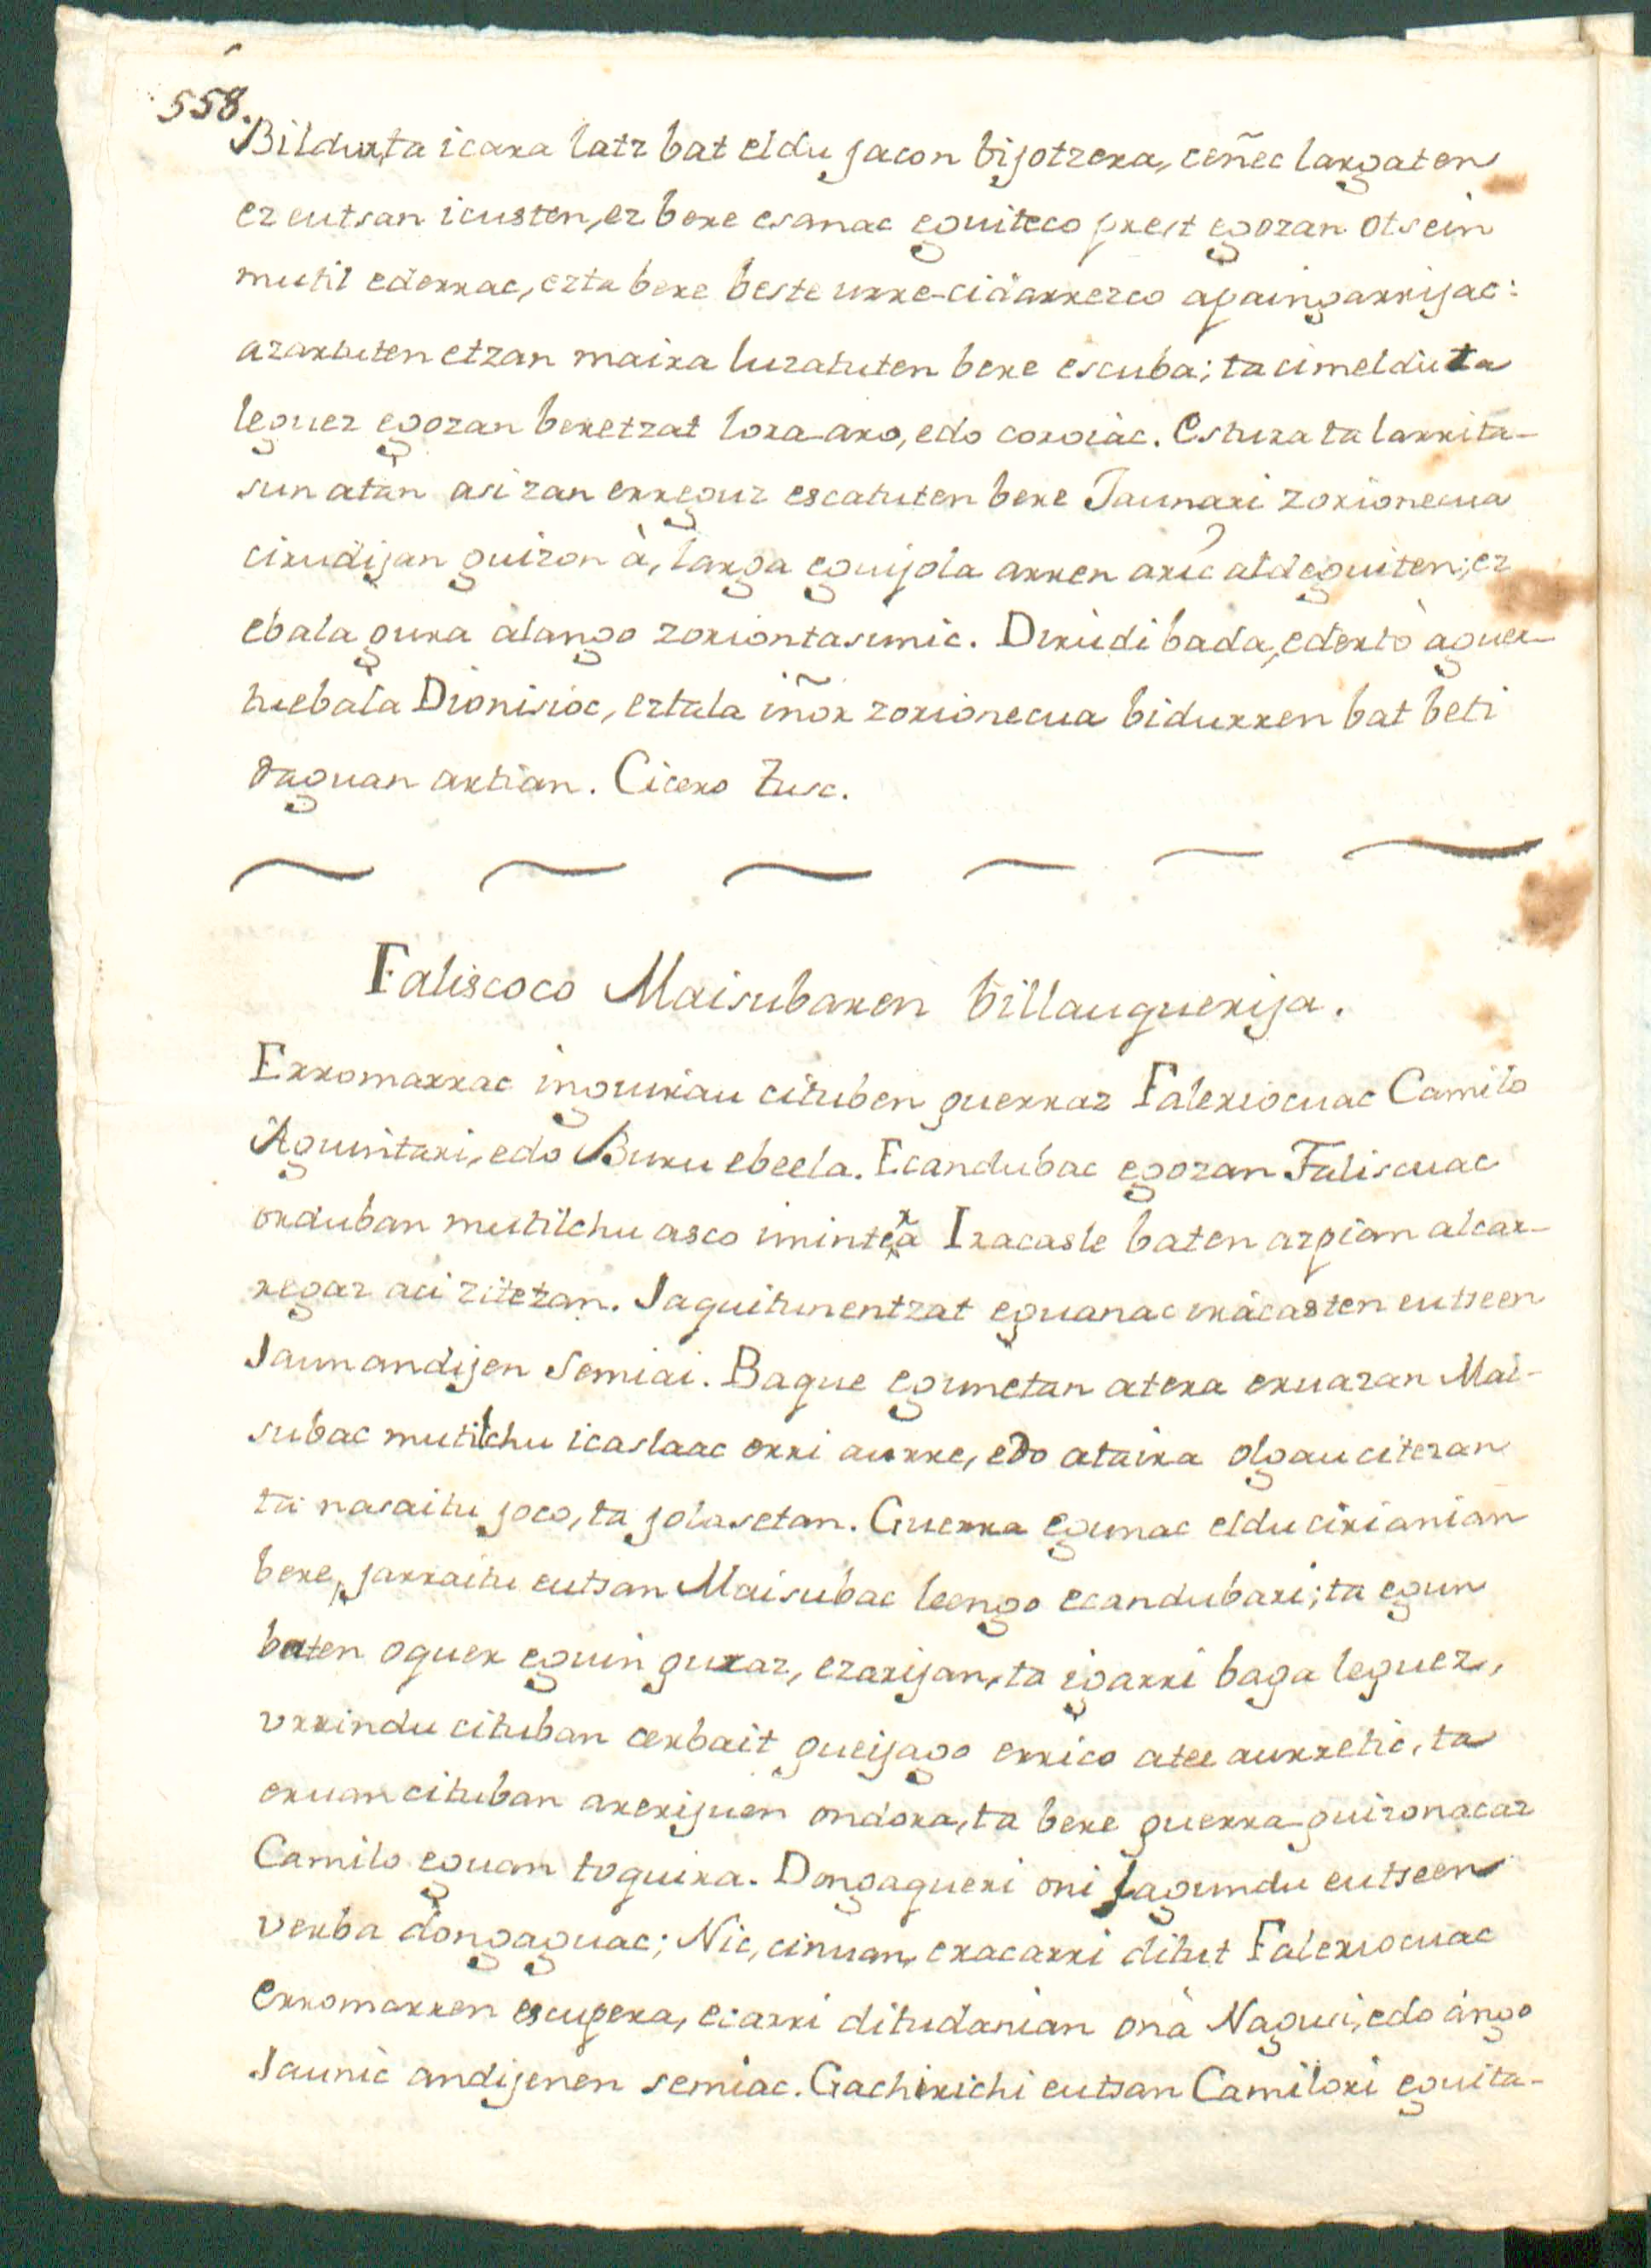 558.
Bildur,ta icara latz bat eldu jacon bijotzera, ceñec largaten
ez eutsan icusten, ez bere esanac eguiteco prest egozan otsein
mutil ederrac, ezta bere beste urre-cidarrezco apaingarrijac:
azartuten etzan maira luzatuten bere escuba; ta cimelduta
leguez egozan beretzat lora-aro, edo coroiác. Estura ta larrita-
sun atan asi zan erreguz escatuten bere Jaunari zorionecua
cirudijan guizon à, larga eguijola arren aric aldeguiten; ez
ebala gura àlango zoriontasunic. Dirudi bada, ederto àguer-
tuebala Dionisioc, eztala iñor zorionecua bidurren bat beti
daguan artian. Cicero Tusc.
Faliscoco Maisubaren billauguerija.
Erromarrac inguriau cituben guerraz Faleriocuac Camilo
Aguintari, edo Buru ebeela. Ecandubac egozan Faliscuac
orduban mutilchu asco iminten Iracasle baten azpian alcar-
regaz aci zitezan. Jaquitunentzat eguanac iracasten eutseen
Jaun andijen semiai. Baque egunetan atera eruazan Mai-
subac mutilchu icaslaac erri aurre, edo ataira olgau citezan
ta nasaitu joco, ta jolasetan. Guerra egunac eldu cirianian
bere, jarraitu eutsan Maisubac leengo ecandubari; ta egun
baten oguer eguin guraz, ezarijan, ta igarri baga leguez,
urrindu cituban cerbait gueijago errico atee aurretic, ta
eruan cituban arerijuen ondora, ta bere guerra-guizonacaz
Camilo eguan toquira. Dongaqueri oni lagundu eutseen
verba dongaguac; Nic, cinuan, eracarri ditut Faleriocuac
erromarren escupera, ecarri ditudanian onà Nagusi, edo ango
Jaunic andijenen semiac. Gachirichi eutsan Camilori eguita-